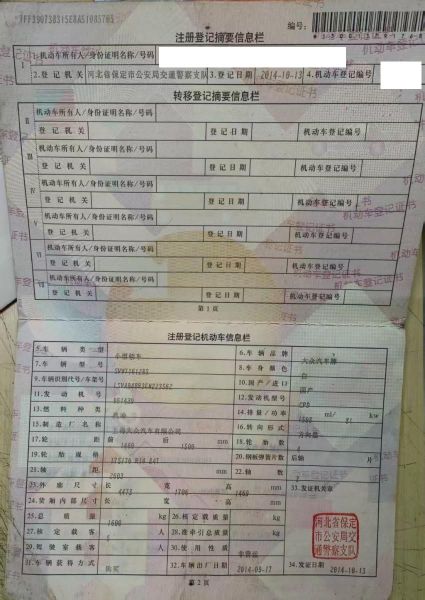 注册登记摘要信息栏
编号:
Ⅰ 1.机动车所有人/身份证明名称/号码
2.登记机关 河北省保定市公安局交通警察支队 3.登记日期 2014-10-13 4.机动车登记编号
转移登记摘要信息栏
Ⅱ 机动车所有人/身份证明名称/号码
登记机关 登记日期 机动车登记编号
Ⅲ 机动车所有人/身份证明名称/号码
登记机关 登记日期 机动车登记编号
Ⅳ 机动车所有人/身份证明名称/号码
登记机关 登记日期 机动车登记编号
Ⅴ 机动车所有人/身份证明名称/号码
登记机关 登记日期 机动车登记编号
Ⅵ 机动车所有人/身份证明名称/号码
登记机关 登记日期 机动车登记编号
Ⅶ 机动车所有人/身份证明名称/号码
登记机关 登记日期 机动车登记编号
第1页
注册登记机动车信息栏
5.车辆类型 小型轿车 6.车辆品牌 大众汽车牌
7.车辆型号 8.车身颜色 白
9.车辆识别代号/车架号 10.国产/进口 国产
11.发动机号 12.发动机型号 CPD
13.燃料种类 汽油 14.排量/功率 1598 ml/ kw
15.制造厂名称 上海大众汽车有限公司 16.转向形式 方向盘
17.轮距 前 后 mm 18.轮胎数
19.轮胎规格 175/70 R14 84T 20.钢板弹簧片数 后轴 片
21.轴距 2603 mm 22.轴数 2
23.外廓尺寸 长 4473 宽 1706 高 1469 mm
33.发证机关章
24.货厢内部尺寸 长 宽 高 mm
25.总质量 1600 kg 26.核定载质量 kg
27.核定载客 5 人 28.准牵引总质量 kg
29.驾驶室载客 人 30.使用性质 非营运
31.车辆获得方式 购买 32.车辆出厂日期 2014-09-17 34.发证日期 2014-10-13
河北省保定市公安局交通警察支队
第2页
机动车登记证书